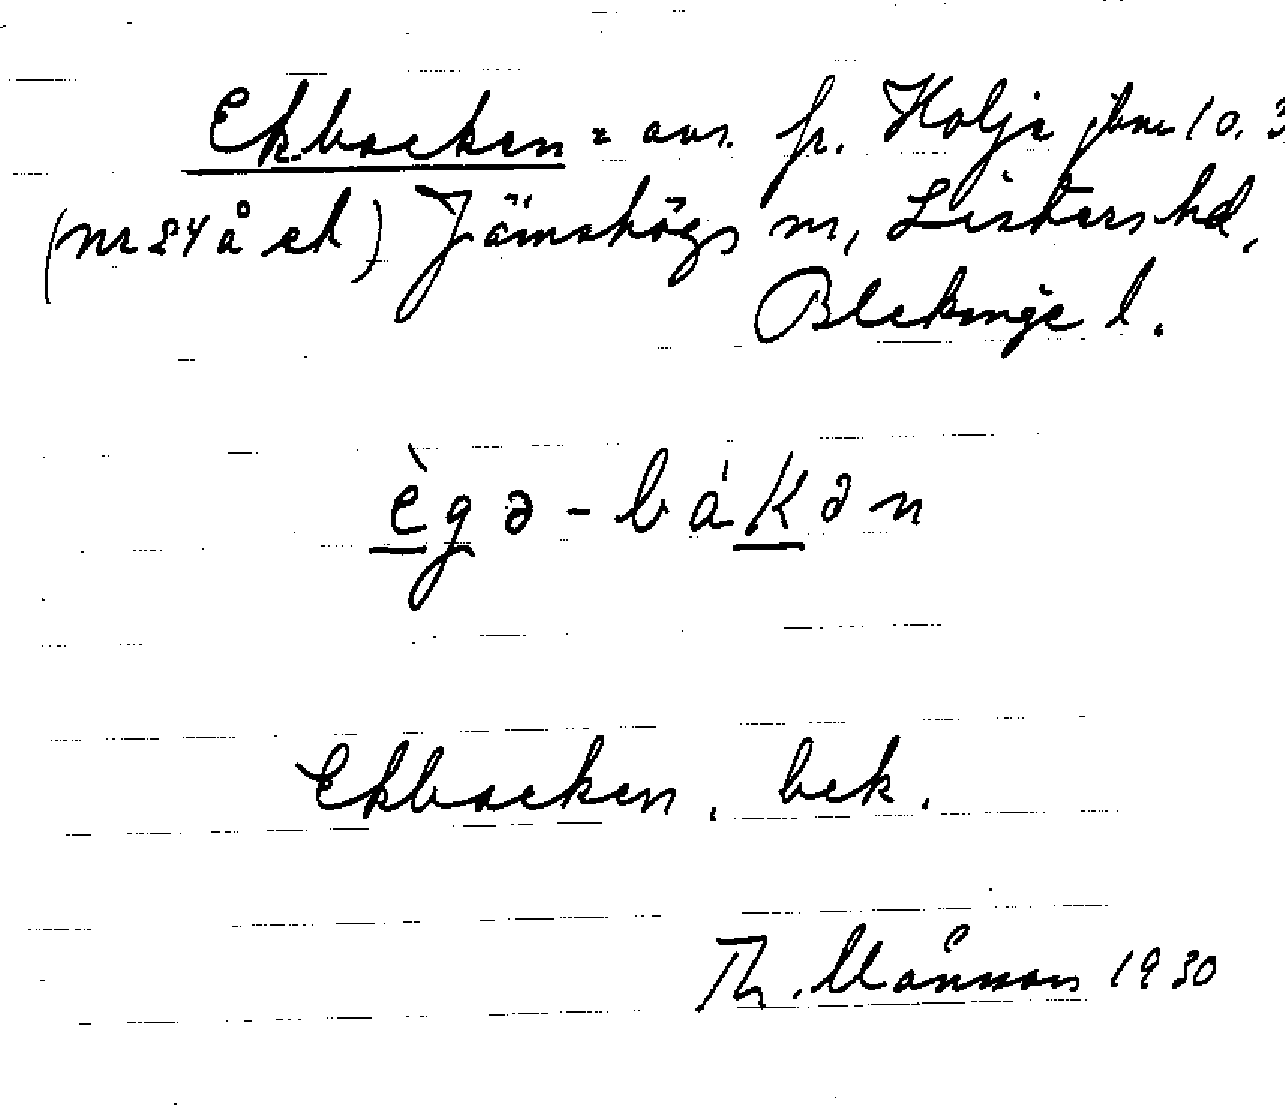 Ekbacken = avs. fr. Holje 10. 3
(nr 84 å ek) Jämshögs sn, Listers hd,
Blekinge l.
ègə - bákən
Ekbacken. bek.
Th. Månson 1930